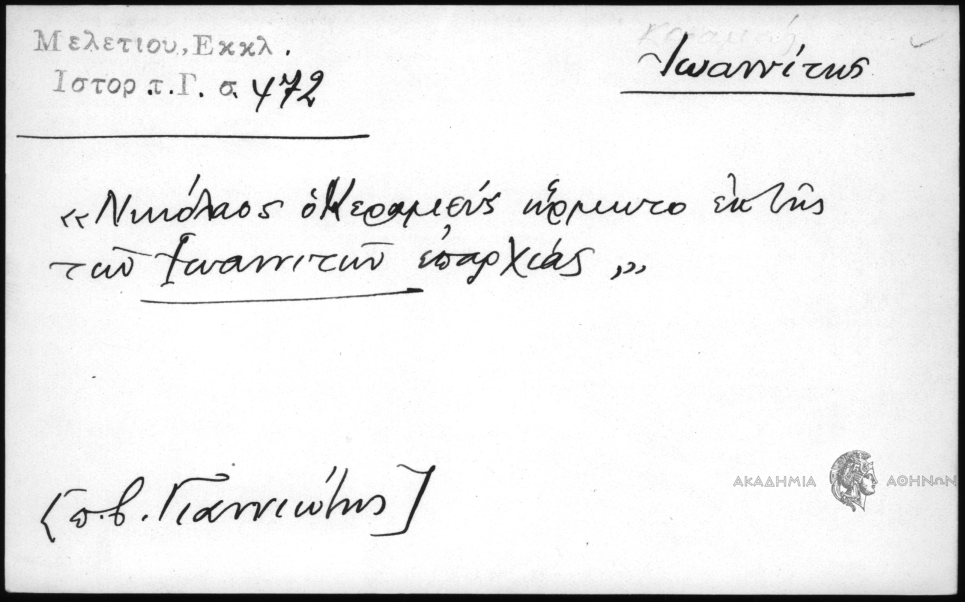 Μελετιου, Εκκλ.
Ιστορ.τ.Γ. σ. 472
Ἰωαννίτης
«Νικόλαος ὁ Κεραμεύς ὥρμωτο ἐκ τῆς
τῶν Ἰωαννιτῶν ἐπαρχίας „»
[π.β. Γιαννιώτης]
ΑΚΑΔΗΜΙΑ ΑΘΗΝΩΝ